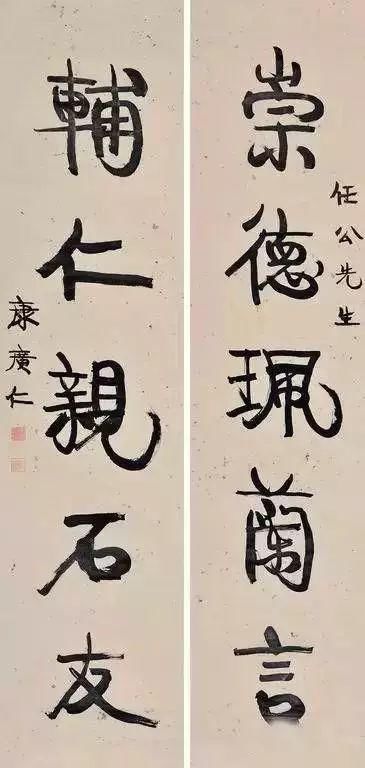 崇德珮蘭言
任公先生
輔仁親石友
康廣仁